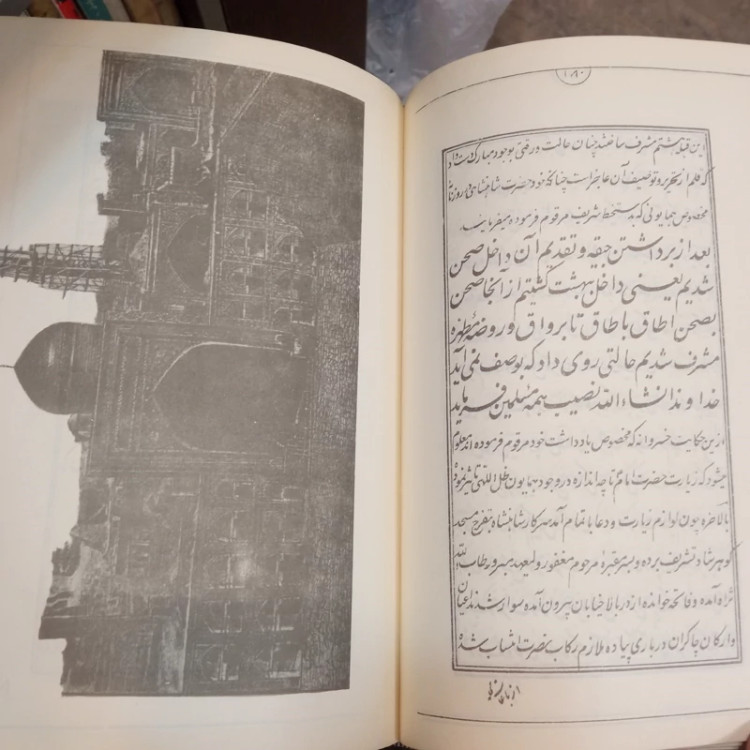 ۱۰۹۰
این قبله هشتم مشرف ساختند چنان حالت و رقتی بوجود مبارک دست داد
که قلم از تحریر و توصیف آن عاجز است چنانکه خود اعلیحضرت شاهنشاهی در روزنامه
مخصوص همایونی که بدستخط شریف مرقوم فرموده و میفرمایند
بعد از برداشتن جیقه و تقدیم آن داخل صحن
شدیم یعنی داخل بهشت گشتیم از آنجا صحن
بصحن اطاق باطاق تا برواق و روضه مطهره
مشرف شدیم حالتی روی داد که بوصف نمی آید
خداوند انشاء الله نصیب همه مسلمین فرماید
ازین حکایت خسروانه که مخصوص یادداشت خود مرقوم فرموده اند معلوم
میشود که زیارت حضرت امام تا چه اندازه در وجود همایون ظل اللهی تاثیر نموده
بالاخره چون لوازم زیارت و دعا باتمام آمد سرکار شاهنشاه بتفرج مسجد
گوهر شاد تشریف برده و بسر مقبره مرحوم مغفور ولیعهد مبرور طاب الله
ثراه آمده و فاتحه خوانده از در بالا خیابان بیرون آمده سوار شدند اعیان
و ارکان چاکران درباری پیاده ملازم رکاب نصرت انتساب شده